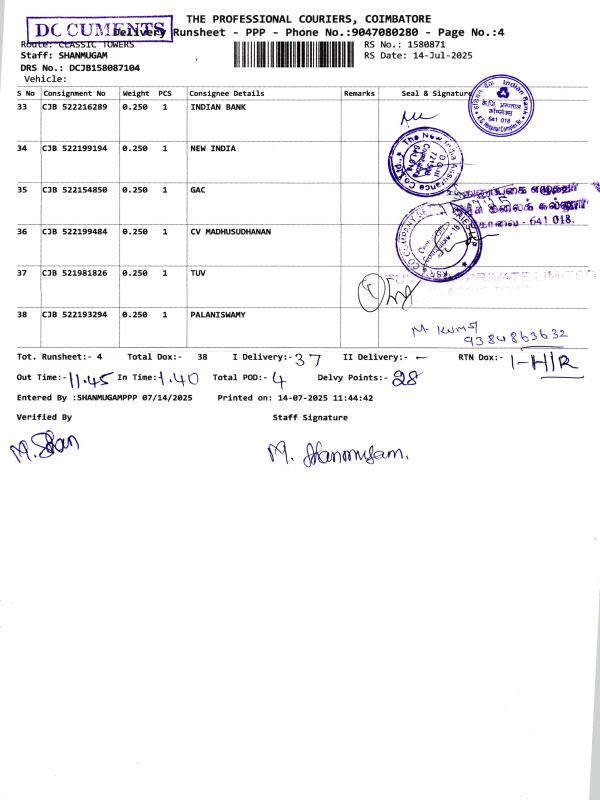 THE PROFESSIONAL COURIERS, COIMBATORE
DOCUMENTS
Delivery Runsheet - PPP - Phone No.:9047080280 - Page No.:4
Route: CLASSIC TOWERS
RS No.: 1580871
Staff: SHANMUGAM
RS Date: 14-Jul-2025
DRS No.: DCJB158087104
Vehicle:
S No Consignment No Weight PCS Consignee Details Remarks Seal & Signature
33 CJB 522216289 0.250 1 INDIAN BANK
Indian Bank
641 018
34 CJB 522199194 0.250 1 NEW INDIA
The New India Assurance Co.
35 CJB 522154850 0.250 1 GAC
கோவை - 641 018.
36 CJB 522199484 0.250 1 CV MADHUSUDHANAN
37 CJB 521981826 0.250 1 TUV
PRIVATE LIMITED
38 CJB 522193294 0.250 1 PALANISWAMY
M. Kumar
9384863632
Tot. Runsheet:- 4 Total Dox:- 38 I Delivery:- 37 II Delivery:- - RTN Dox:- 1-H/R
Out Time:- 11.45 In Time:- 1.40 Total POD:- 4 Delvy Points:- 28
Entered By :SHANMUGAMPPP 07/14/2025 Printed on: 14-07-2025 11:44:42
Verified By Staff Signature
M. Shan M. Shanmugam.